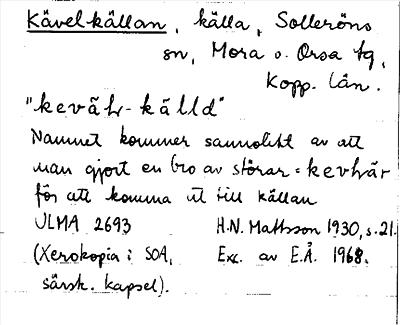 Kävelkällan, källa, Solleröns
sn, Mora o. Orsa tg,
Kopp. län.
"kevähr-källd"
Namnet kommer sannolikt av att
man gjort en bro av störar = kevhrär
för att komma ut till källan
ULMA 2693 H.N. Mattsson 1930, s. 21.
(Xerokopia i SOA, Exc. av E.Å. 1968.
särsk. kapsel).